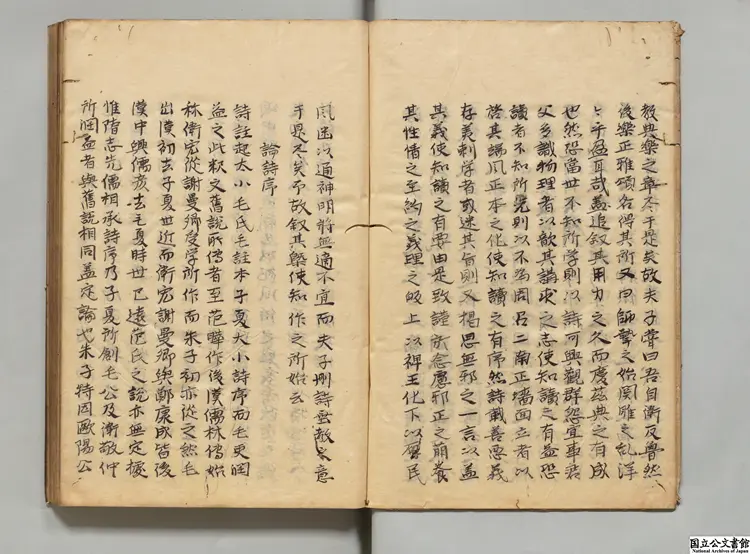 教典樂之章本于是矣故夫子嘗曰吾自衛反魯然
後樂正雅頌各得其所又曰師摯之始關雎之亂洋
〻乎盈耳哉蓋追叙其用力之久而慶茲典之有成
也然恐當世不知所學則以詩可興觀群怨宜事君
父多識物理者以歆其講求之志使知讀之有益恐
讀者不知所先則以不為周召二南正墻面立者以
啓其講風正本之化使知讀之有序然詩載善惡義
存美刺学者或迷其旨則又揭思無邪之一言以蓋
其義使知讀之有要由是致謹所念慮邪正之萠養
其性情之至約之義理之 上以裨王化下以 民
風幽以通神明將無適不宜而夫子刪詩垂教之意
于是不矣予故叙其槩使知作之所始云
論詩序
詩註起太小毛氏毛註本子夏大小詩序而毛更潤
益之此釈文舊說所傳者至范曄作後漢儒林傳始
称衛宏從謝曼卿受学所作而朱子初亦從之然毛
出漢初去子夏世近而衛宏謝曼卿與鄭康成皆後
漢中興儒家去毛夏時世已遠范氏之說亦無定據
惟隋志先儒相承詩序乃子夏所創毛公及衛敬仲
所潤益者與舊說相同蓋定論也朱子特因歐陽公
国立公文書館
National Archives of Japan